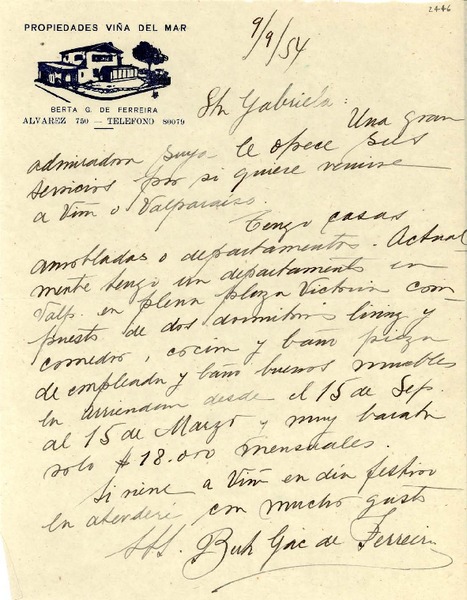 2446
PROPIEDADES VIÑA DEL MAR
BERTA G. DE FERREIRA
ALVAREZ 750 — TELEFONO 80079
9/9/54
Sta Gabriela:
Una gran
admiradora suya le ofrece sus
servicios por si quiere venirse
a Viña o Valparaiso.
Tengo casas
amobladas o departamentos. Actual
mente tengo un departamento en
Valp. en plena plaza Victoria com
puesto de dos dormitorios living y
comedor, cocina y baño pieza
de empleada y baño buenos muebles
la arriendan desde el 15 de Sep.
al 15 de Marzo y muy barata
solo $18.000 mensuales.
Si viene a Viña en dia festivo
la atenderé con mucho gusto
SSS. Berta G de Ferreira